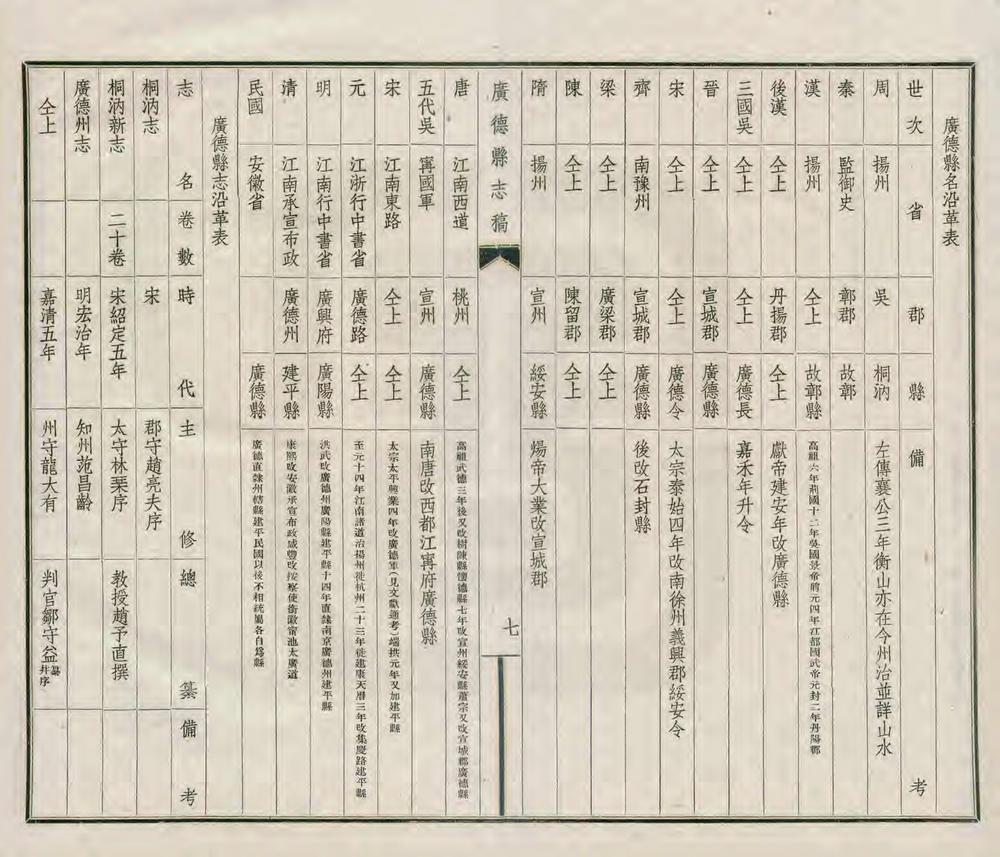 廣德縣名沿革表
世次 省 郡 縣 備考
周 揚州 吳 桐汭 左傳襄公三年衡山亦在今州治並詳山水
秦 監御史 鄣郡 故鄣
漢 揚州 仝上 故鄣縣 高祖六年荊國十二年吳國景帝前元四年江都國武帝元封二年丹陽郡
後漢 仝上 丹揚郡 仝上 獻帝建安年改廣德縣
三國吳 仝上 仝上 廣德長 嘉禾年升令
晉 仝上 宣城郡 廣德縣
宋 仝上 仝上 廣德令 太宗泰始四年改南徐州義興郡綏安令
齊 南豫州 宣城郡 廣德縣 後改石封縣
梁 仝上 廣梁郡 仝上
陳 仝上 陳留郡 仝上
隋 揚州 宣州 綏安縣 煬帝大業改宣城郡
廣德縣志稿
七
唐 江南西道 桃州 仝上 高祖武德三年後又改樹陳縣懷德縣七年改宣州綏安縣肅宗又改宣城郡廣德縣
五代吳 寗國軍 宣州 廣德縣 南唐改西都江寗府廣德縣
宋 江南東路 仝上 仝上 太宗太平興業四年改廣德軍(見文獻通考)端拱元年又加建平縣
元 江浙行中書省 廣德路 仝上 至元十四年江南諸道治揚州徙杭州二十三年徙建康天曆三年改集慶路建平縣
明 江南行中書省 廣興府 廣陽縣 洪武改廣德州廣陽縣建平縣十四年直隸南京廣德州建平縣
清 江南承宣布政 廣德州 建平縣 康熙改安徽承宣布政咸豐改按察使銜徽甯池太廣道
民國 安徽省 廣德縣 廣德直隸州轄縣建平民國以後不相統屬各自爲縣
廣德縣志沿革表
志名 卷數 時代 主修 總纂 備考
桐汭志 宋 郡守趙亮夫序
桐汭新志 二十卷 宋紹定五年 太守林琹序 教授趙予直撰
廣德州志 明宏治年 知州范昌齡
仝上 嘉清五年 州守龍大有 判官鄒守益纂并序